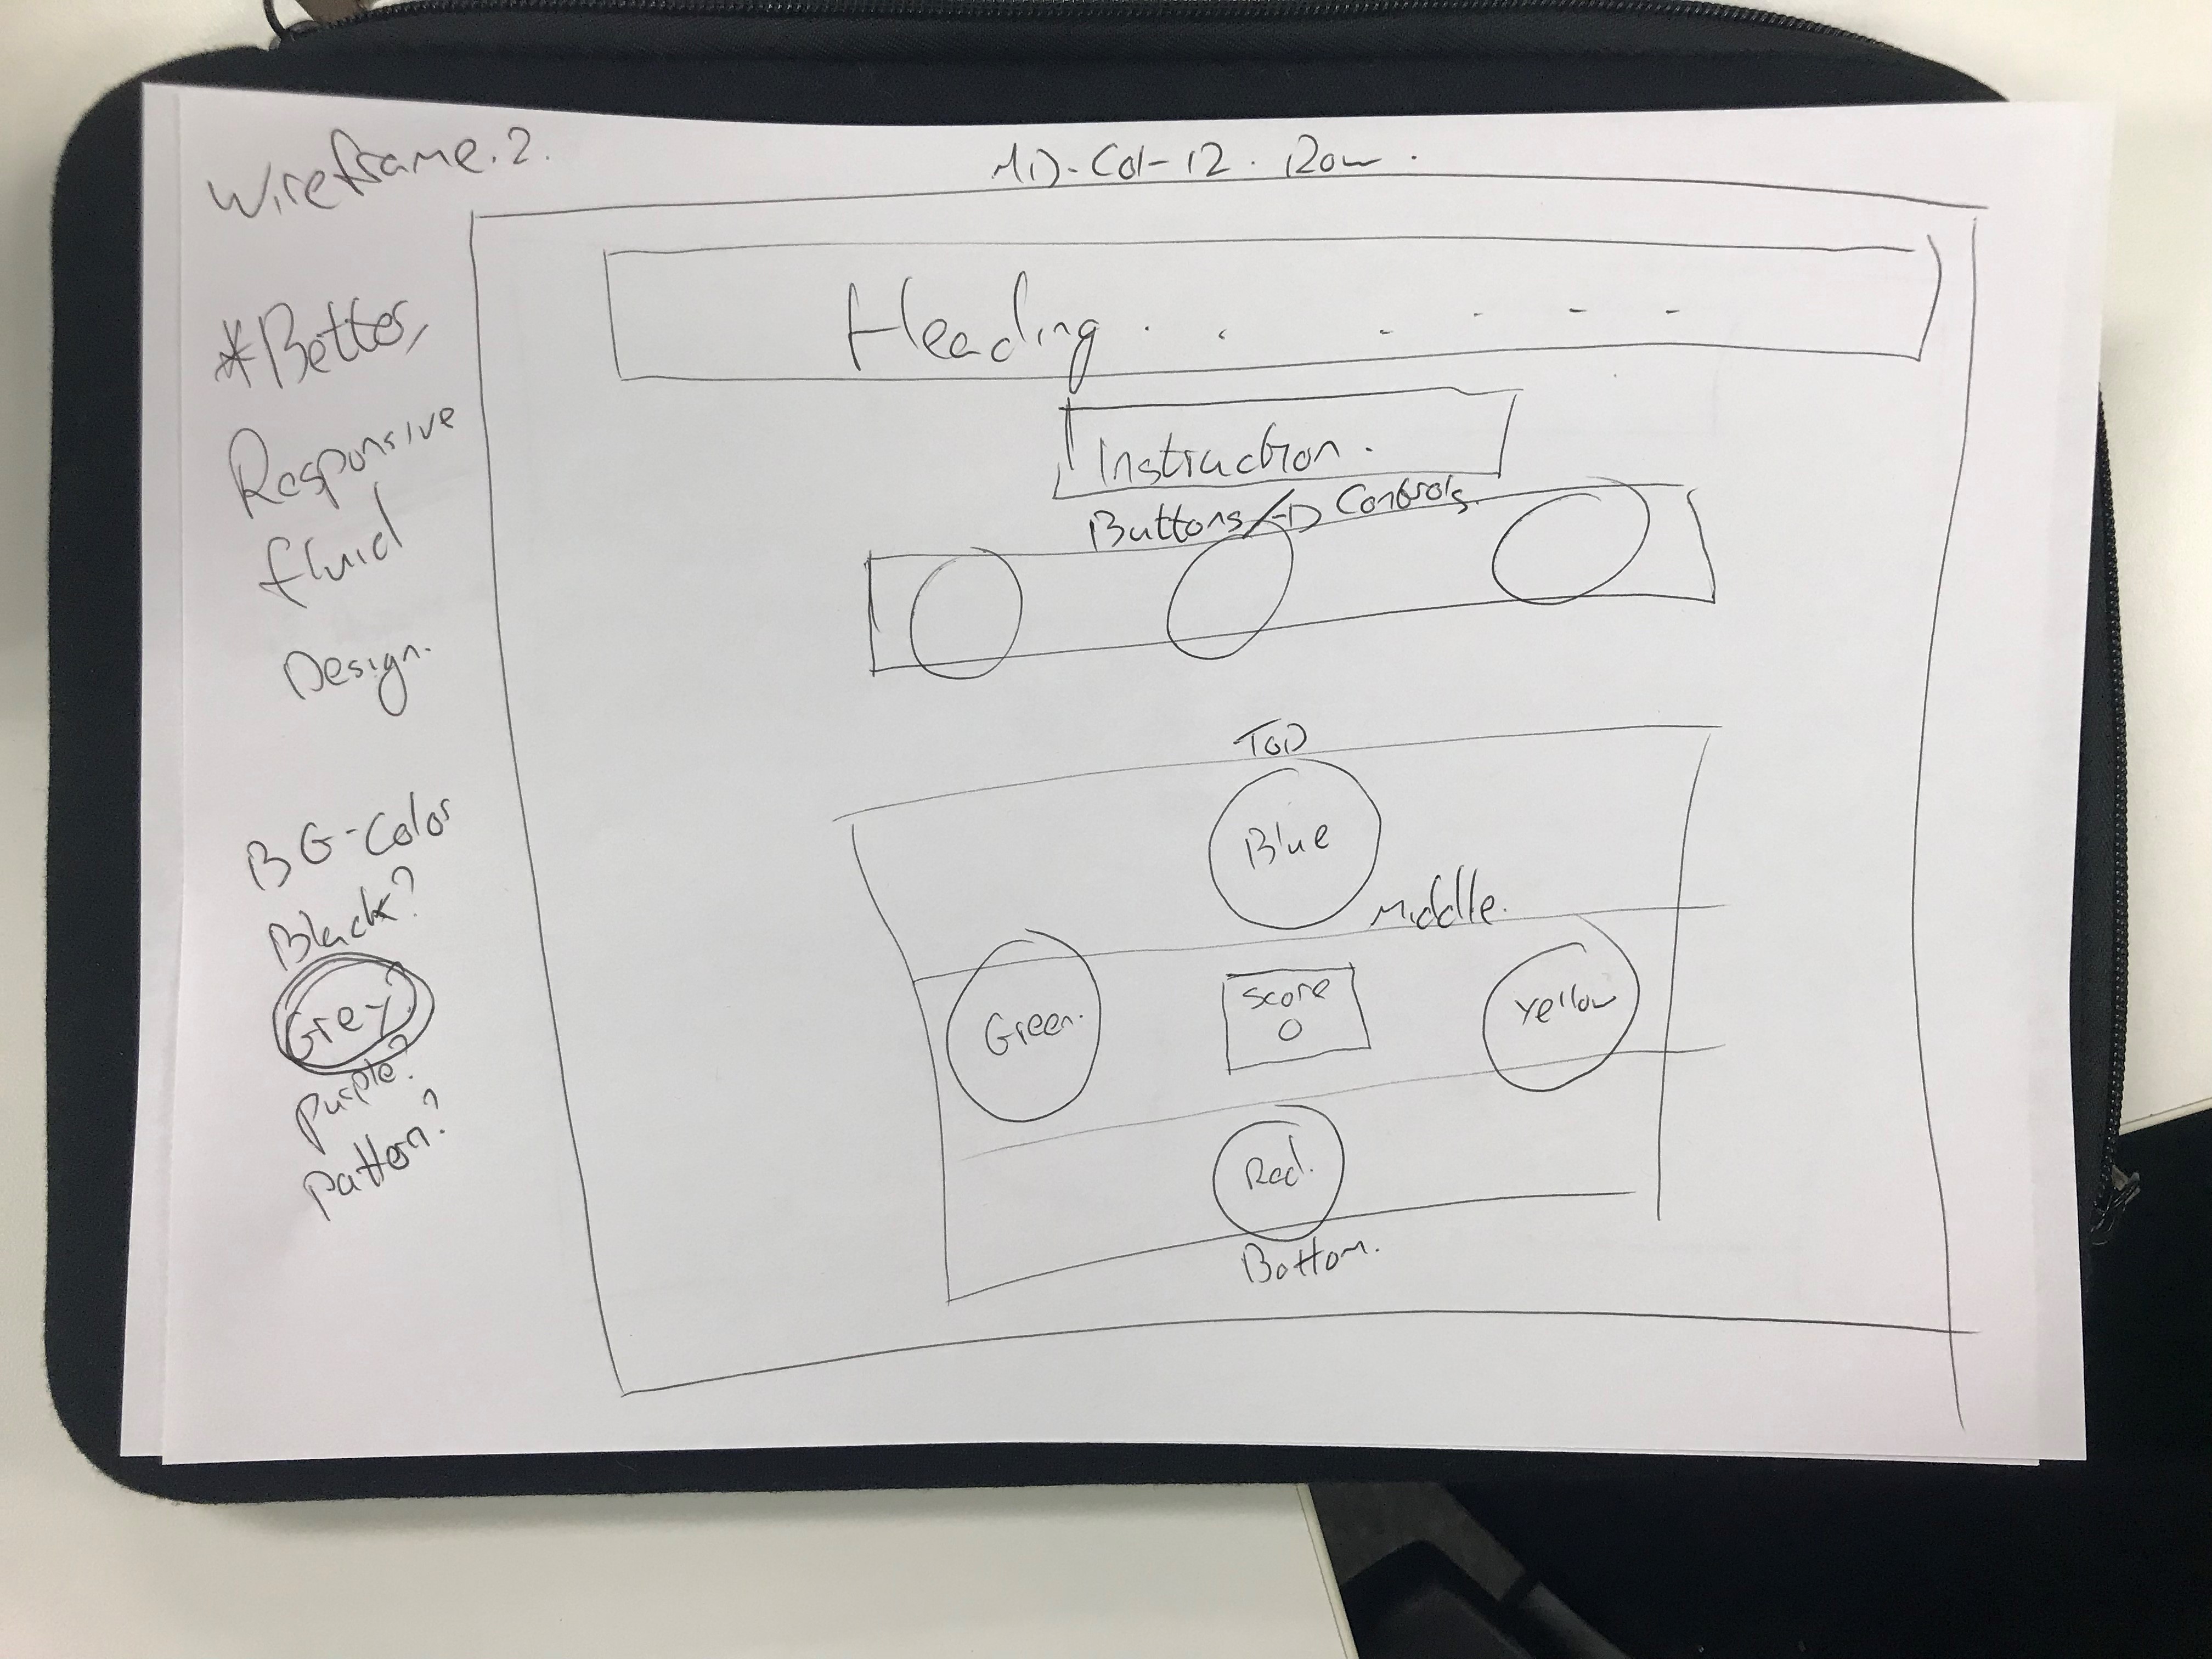 Wireframe.2.
MD-Col-12. Row.
*Better,
Responsive
fluid
Design.
BG-Color
Black?
Grey?
Purple?
Pattern?
Heading.
Instruction.
Buttons/ Controls.
Top
Blue
Middle.
Green.
Score
0
Yellow
Red.
Bottom.